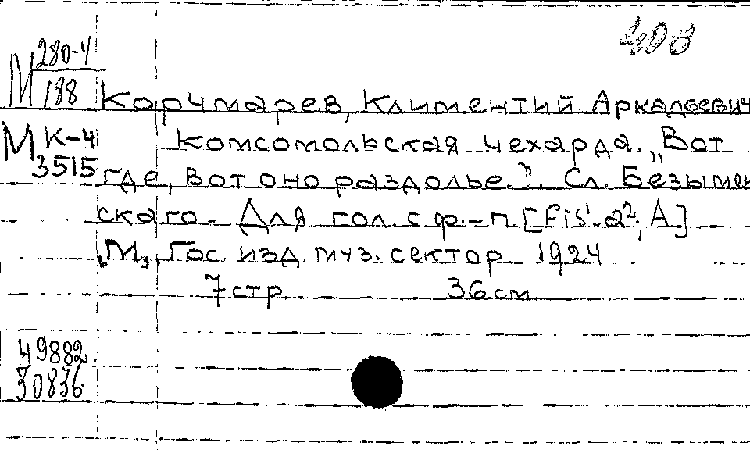 408
М 280-4
188
Корчмарев, Климентий Аркадьевич
М К-4
3515
Комсомольская чехарда. „Вот
где, вот оно раздолье." Сл. Безымен
ского. Для гол. с ф-п. [Fis¹-a², A.]
М., Гос. изд. муз. сектор 1924
7 стр. 36 см
49882
30836